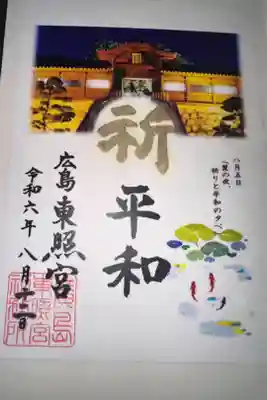 八月五日
「夏の夜、
祈りと平和の夕べ」
祈
平和
広島東照宮
令和六年八月十二日